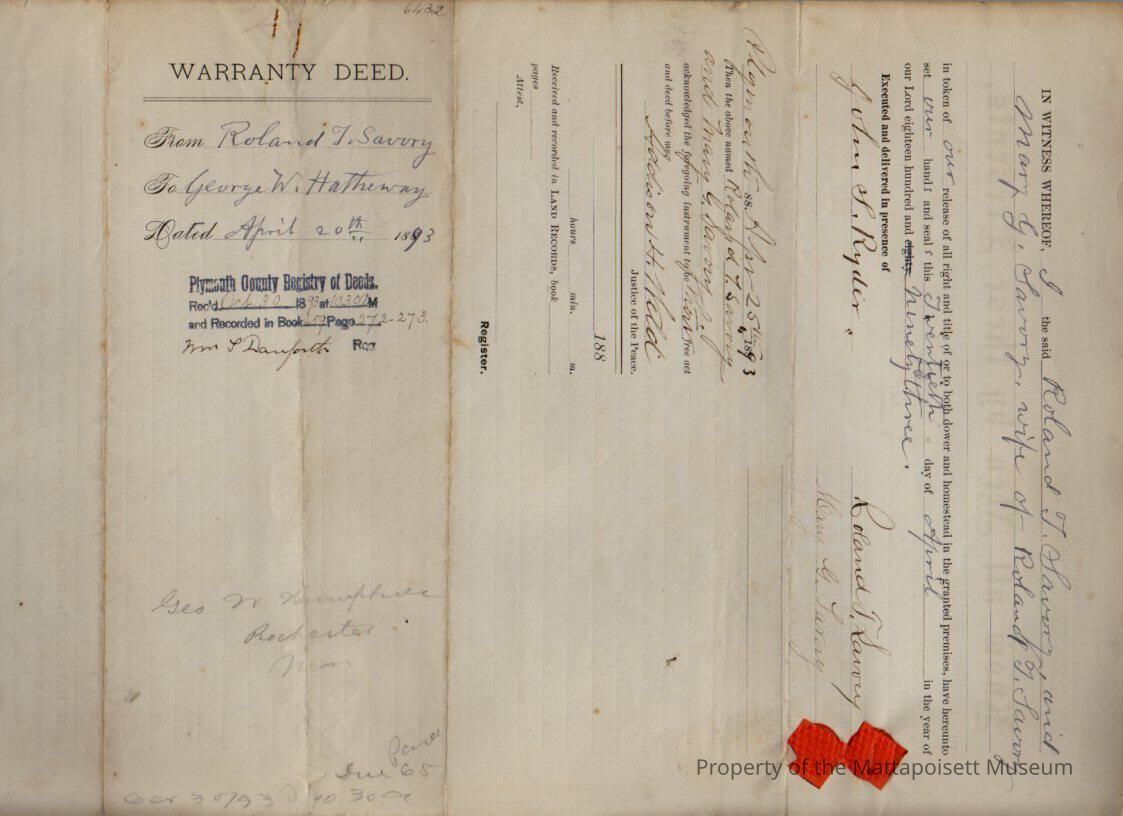 6432
WARRANTY DEED.
From Roland T. Savory
To George W. Hatheway
Dated April 20th 1893
Plymouth County Registry of Deeds.
Rec'd Oct. 30 1893 at 10.30 A M
and Recorded in Book Page 272-273.
Wm S Danforth Reg
Geo W Humphrey
Rochester
Mass
Due 65
Oct 30/93 10 30
IN WITNESS WHEREOF, I the said Roland T. Savory, and
Mary G. Savory, wife of Roland T. Savory
in token of our release of all right and title of or to both dower and homestead in the granted premises, have hereunto
set our hands and seals this Twentieth day of April in the year of
our Lord eighteen hundred and eighty Ninety three.
Executed and delivered in presence of
John S. Ryder.
Roland T. Savory
Mary G. Savory
Plymouth ss. Apr 25th 1893
Then the above named Roland T. Savory
and Mary G. Savory
acknowledged the foregoing instrument to be their free act
and deed before me,
Justice of the Peace.
188
hours min. m.
Received and recorded in LAND RECORDS, book
pages
Attest,
Register.
Property of the Mattapoisett Museum